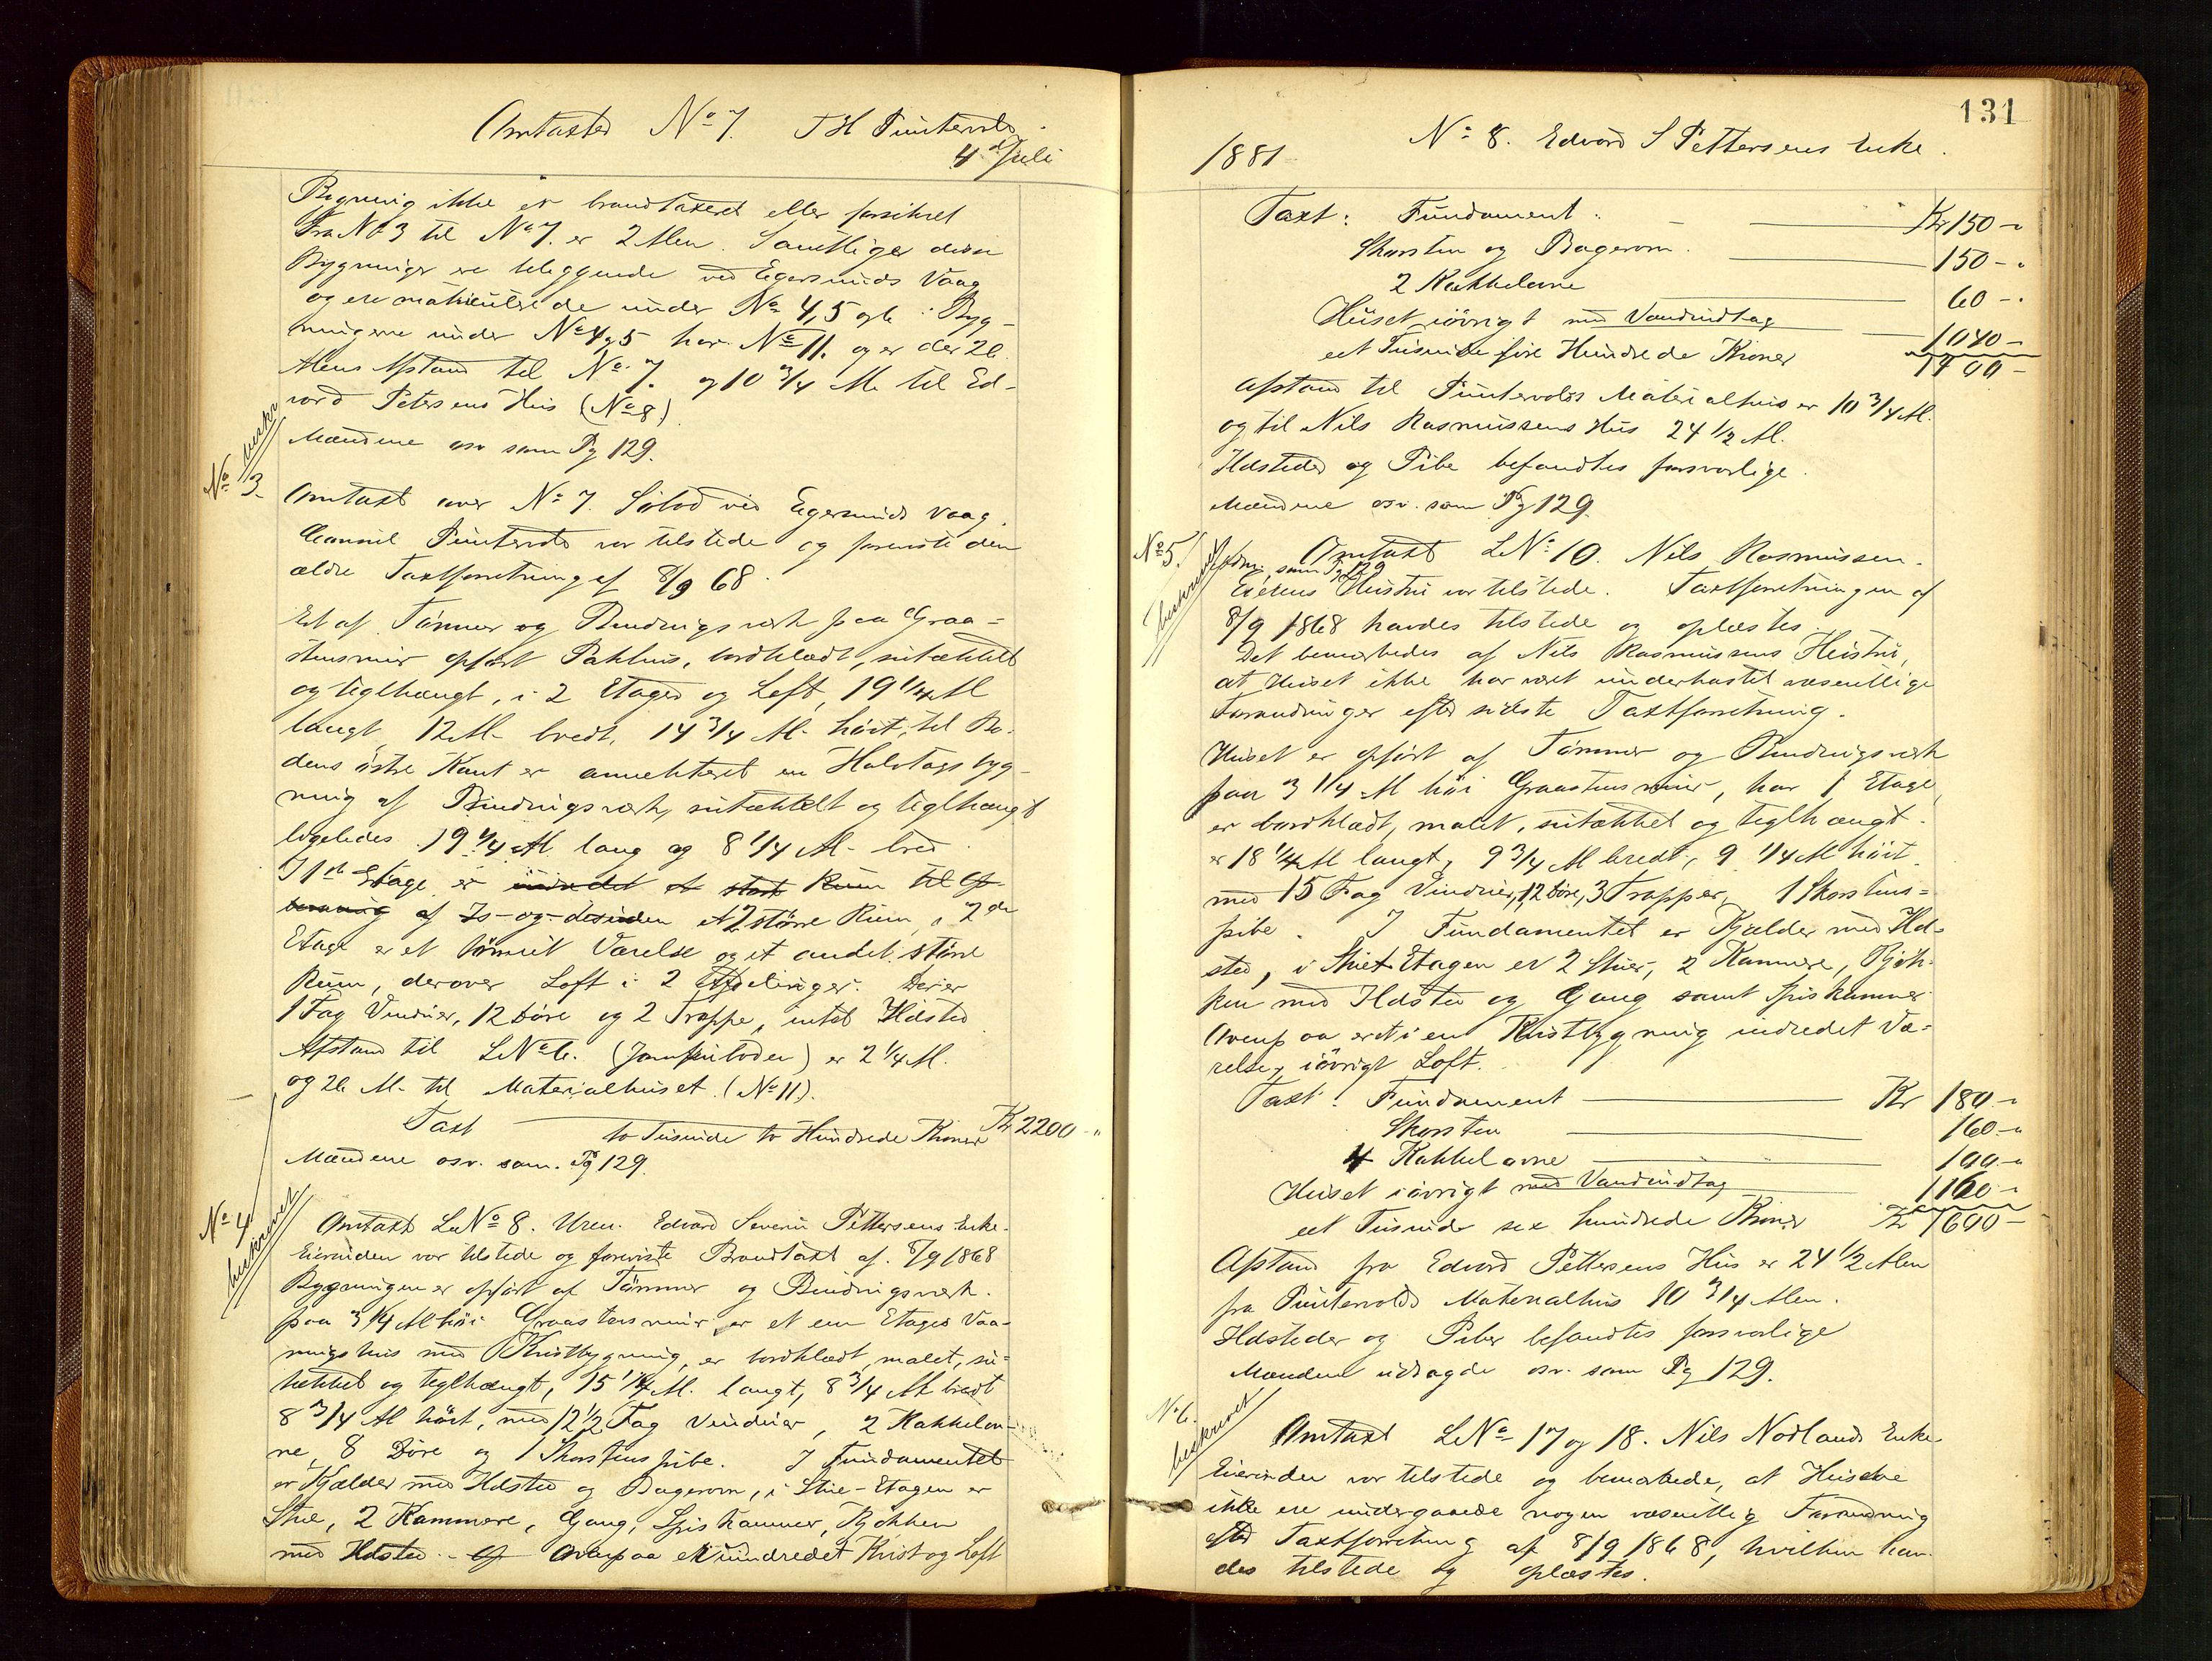 Omtaxted No 7. T H Puntervolds
4de Juli
Bygning ikke er brandtaxeret eller forsikret
Fra No 3 til No 7. er 2 Alen. Samtlige disse
Bygninger ere beliggende ved Egersunds Vaag
og ere matriculerede under No 4, 5 og 6. Byg-
ningerne under No 4 og 5 har No 11. og er der 26
Alens Afstand til No 7. og 10 3/4 Al. til Ed-
vard Petersens Hus (No 8)
Mændene osv som Pg 129.
No 3.
Omtaxt over No 7. Söbod ved Egersunds Vaag.
Puntervold var tilstede og foreviste den
ældre Taxtforretning af 8/9 68.
Et af Tömmer og Bindingsværk paa Graa-
stensmur opfört Pakhus, bordklædt, sutækket
og teglhængt, i 2 Etager og Loft, 19 1/4 Al
langt 12 Al. bredt, 14 3/4 Al. höit, til Bo-
dens östre Kant er annekteret en Halvtagsbyg-
ning af Bindingsværk, sutækket og teglhængt
ligeledes 19 1/4 Al. lang og 8 1/4 Al. bred
I 1ste Etage er indredet et stort Rum til Op-
bevaring af Is- og desuden et 2 större Rum, i 2den
Etage er et tömret Værelse og et andet större
Rum, derover Loft i 2 Afdelinger. Der er
1 Fag Vinduer, 12 Döre og 2 Trappe, intet Ildsted
Afstand til LNo 6. er 2 1/4 Al.
og 26 Al. til Materialhuset (No 11).
Taxt to Tusinde to Hundrede Kroner Kr 2200 - "
Mændene osv. som. Pg 129.
No 4
beskrevet
Omtaxt LNo 8. Uren. Edvard Severin Pettersens Enke.
Eierinden var tilstede og foreviste Brandtaxt af 8/9 1868
Bygningen er opfört af Tömmer og Bindingsverk.
paa 3 1/4 Al höi Graastensmur, er et een Etages Vaa-
ningshus med Kvistbygning, er bordklædt, malet, su-
tækket og teglhængt, 15 1/4 Al. langt, 8 3/4 Al bredt
8 3/4 Al höit, med 12 1/2 Fag Vinduer, 2 Kakkelov-
ne, 8 Döre og 1 Skorstenspibe. I Fundamentet
er Kjælder med Ildsted og Bagerovn, i Stue-Etagen er
Stue, 2 Kammere, Gang, Spiskammer, Kjökken
med Ildsted. Ovenpaa et uindredet Kvist og Loft
131
1881
No 8. Edvard S Pettersens Enke.
Taxt: Fundament Kr 150 - "
Skorsten og Bagerovn. 150 - "
2 Kakkelovne 60 - "
Huset iövrigt med Vandindtag 1040 -
eet Tusinde fire Hundrede Kroner 1400 -
Afstand til Puntervolds Materialhus er 10 3/4 Al.
og til Nils Rasmussens Hus 24 1/2 Al.
Ildsteder og Pibe befandtes forsvarlige.
Mændene osv. som Pg 129.
No 5.
beskrevet
Omtaxt LNo 10. Nils Rasmussen.
som Pg 129
Eierens Hustru var tilstede. Taxtforretningen af
8/9 1868 havdes tilstede og oplæstes.
Det bemærkedes af Nils Rasmussens Hustru,
at Huset ikke har været underkastet væsentlige
Forandringer efter sidste Taxtforretning.
Huset er opfört af Tömmer og Bindingsverk
paa 3 1/4 Al höi Graastensmur, har 1 Etage,
er bordklædt, malet, sutækket og teglhængt.
er 18 1/4 Al langt, 9 3/4 Al bredt, 9 1/4 Al höit
med 15 Fag Vinduer, 12 Döre, 3 Trapper, 1 Skorstens-
pibe. I Fundamentet er Kjælder med Ild-
sted, i Stue-Etagen er 2 Stuer, 2 Kammere, Kjök-
ken med Ildsted og Gang samt Spiskammer
Ovenpaa er et i en Kvistbygning indredet Væ-
relse, iövrigt Loft.
Taxt: Fundament Kr 180 - "
Skorsten 160 - "
4 Kakkelovne 100 - "
Huset iövrigt med Vandindtag 1160 - "
eet Tusinde sex hundrede Kroner Kr 1600 -
Afstand fra Edvard Pettersens Hus er 24 1/2 Alen
fra Puntervolds Materialhus 10 3/4 Alen.
Ildsteder og Piber befandtes forsvarlige
Mændene udsagde osv. som Pg 129.
No 6.
beskrevet
Omtaxt LNo 17 og 18. Nils Nodlands Enke
Eierinden var tilstede og bemærkede, at Husene
ikke ere undergaaede nogen væsentlig Forandring
efter Taxtforretning af 8/9 1868, hvilken hav-
des tilstede og oplæstes.